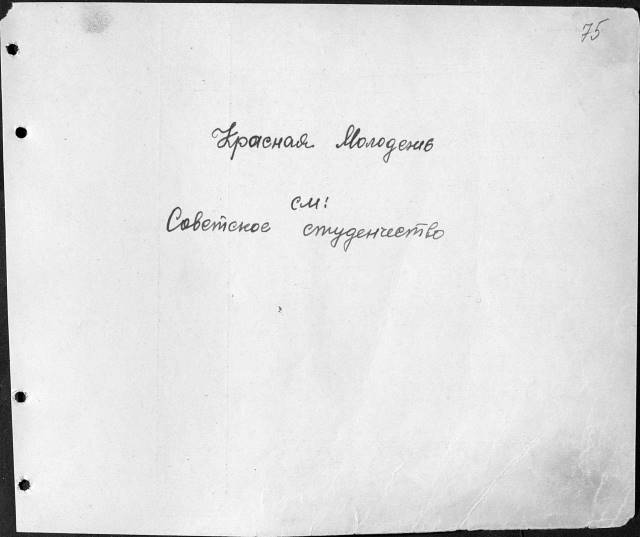 75
Красная Молодежь
см:
Советское студенчество